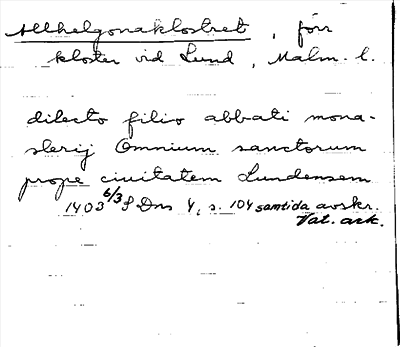 Allhelgonaklostret, förr
kloster vid Lund, Malm. l.
dilecto filio abbati mona-
sterij Omnium sanctorum
prope ciuitatem Lundensem
1403 6/3 Dns 4, s. 104 samtida avskr.
Vat. ark.